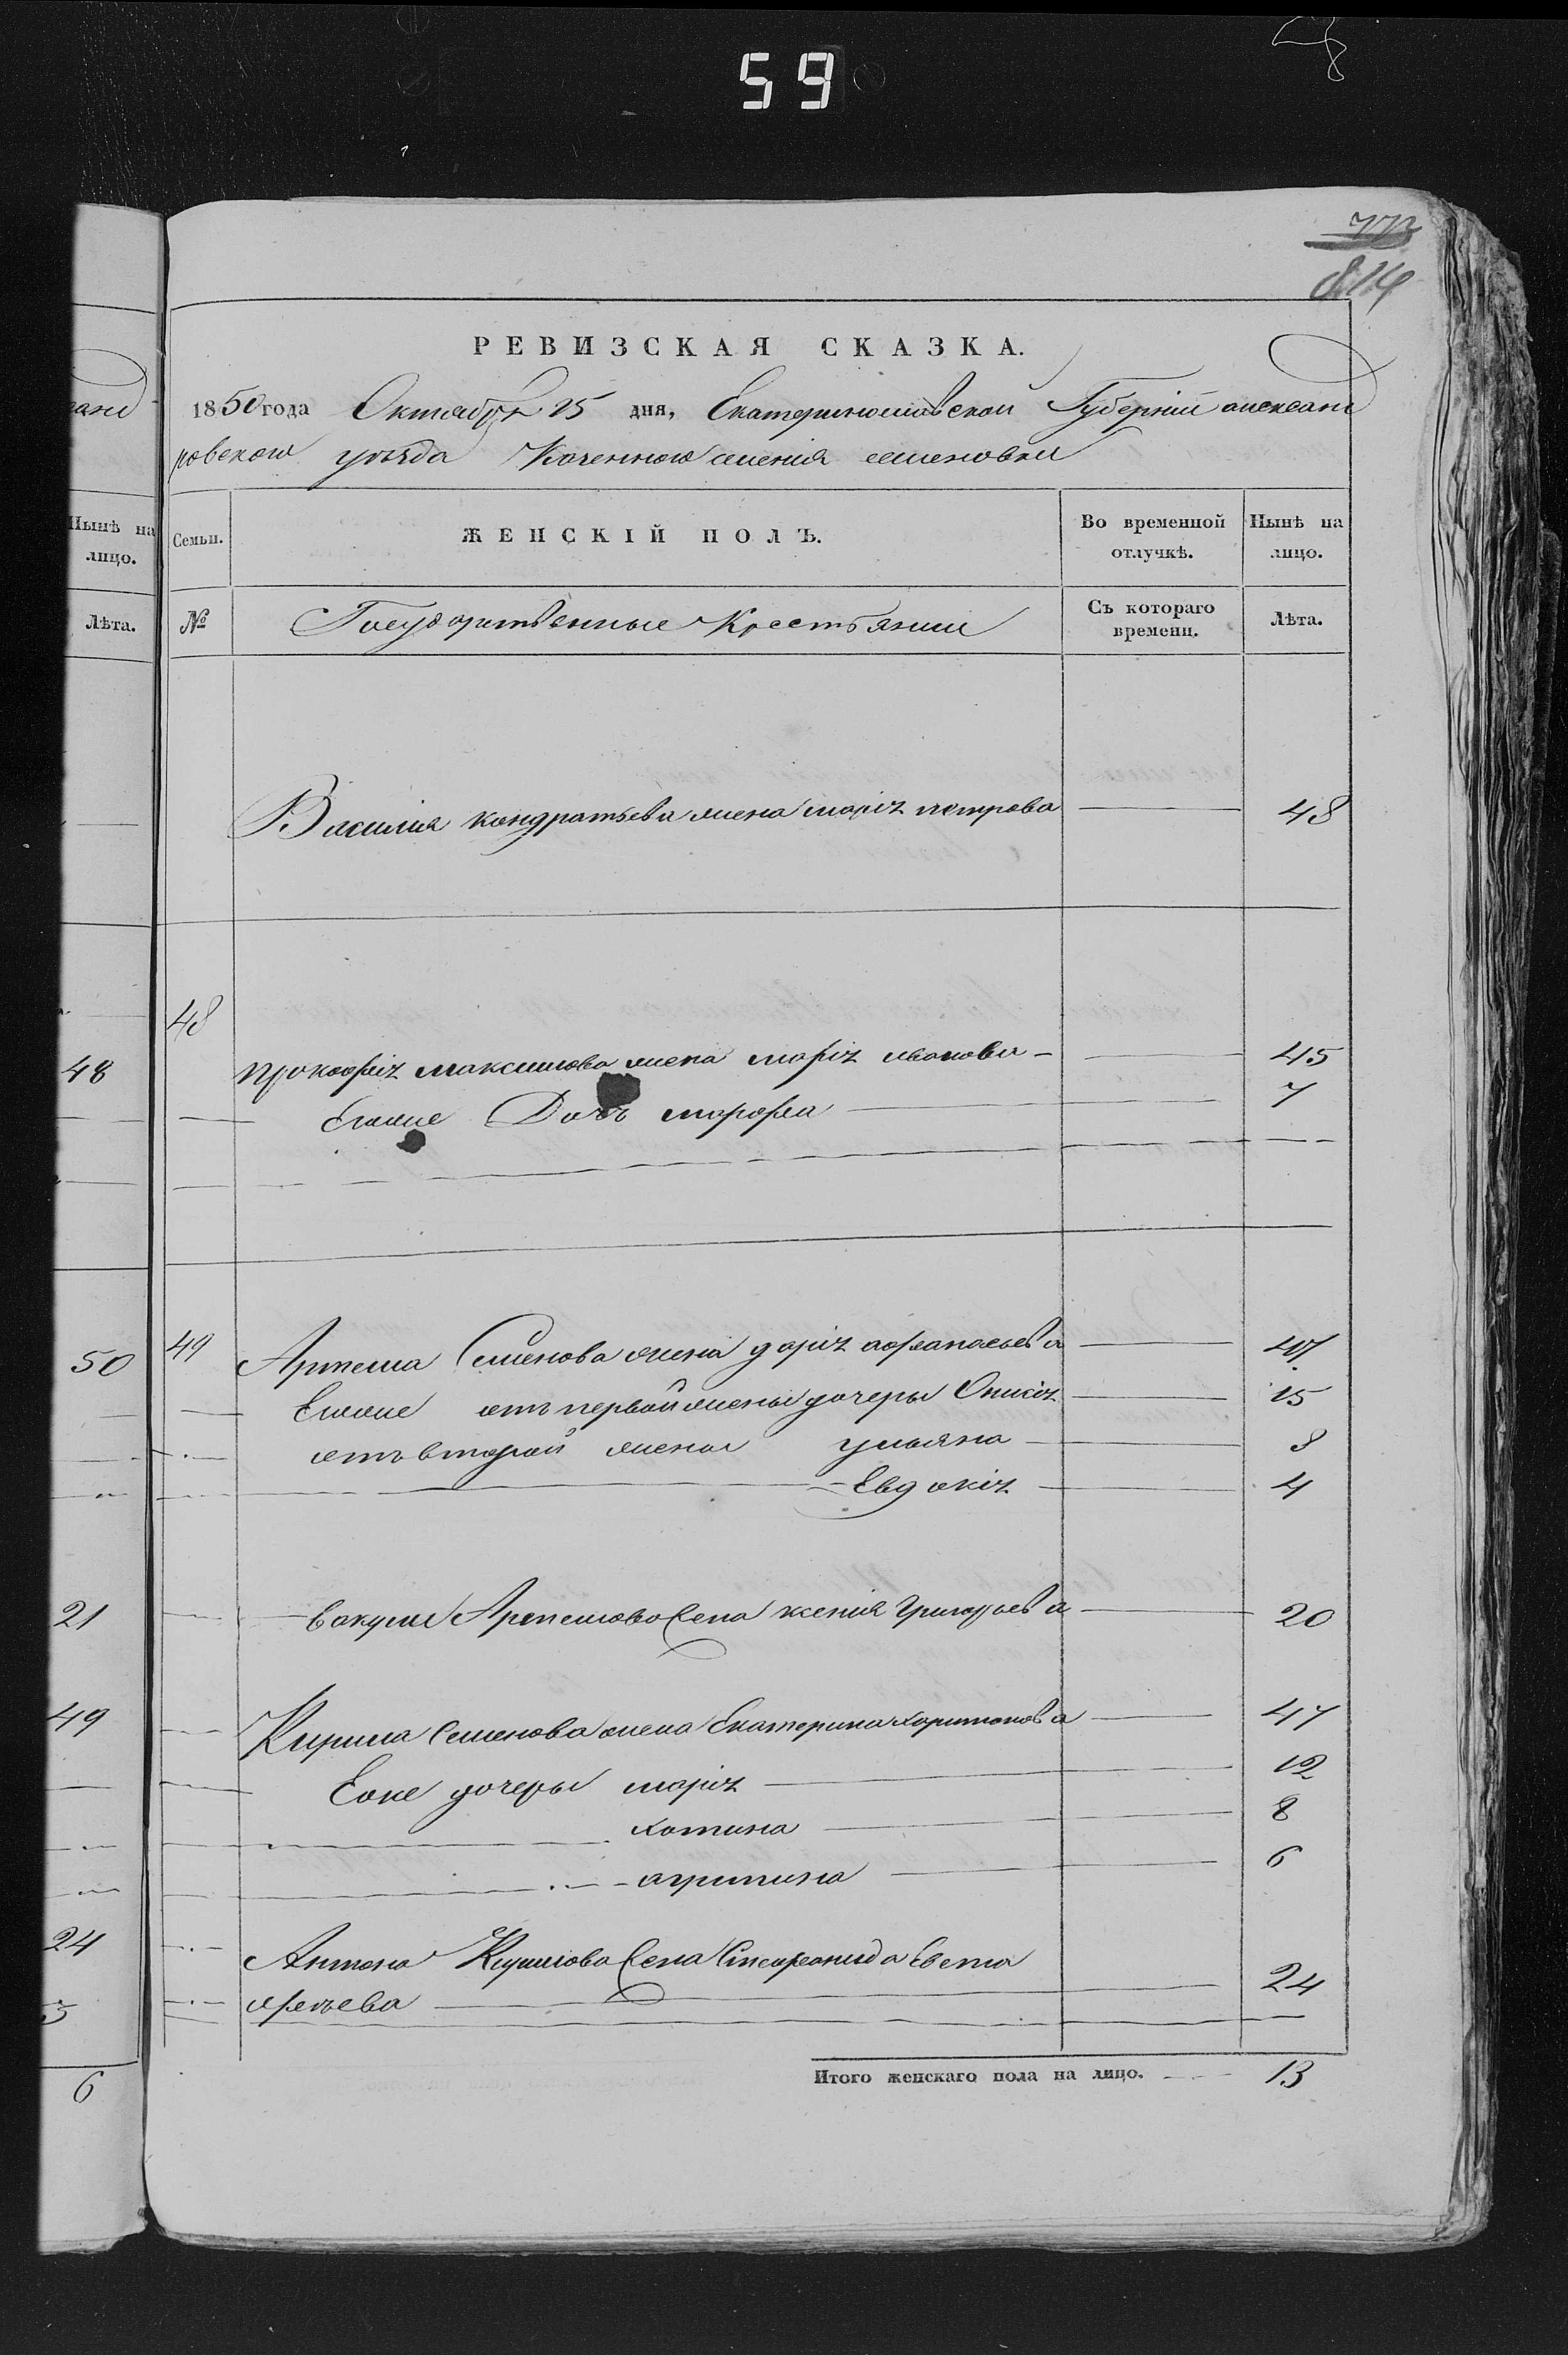 59
772
814
РЕВИЗСКАЯ СКАЗКА.
1850 года Октября 25 дня, Екатеринославской Губерніи александ
ровского уезда Козенного имения семеновки
Семьи. ЖЕНСКІЙ ПОЛЪ. Во временной отлучкѣ. Нынѣ на лицо.
№ Государственные Крестьяни Съ котораго времени. Лѣта.
Василия кондратьева жена марія петрова — 48
48
прокофія максимова жена марія иванова — 45
Егоже Дочь марфа — 7
49 Артема Семенова жена дарія афанасьева — 47
Егоже отъ первой жены дочеры Онисія — 15
отъ второй жены ульяна — 8
Евдокія — 4
вакулы Артемова Сена ксения Григорьева — 20
Кирила Семенова жена Екатерина харитонова — 47
Еоже дочеры марія — 12
хотина — 8
агрипина — 6
Антона Кирилова Сена Стефанида Евста
фьева — 24
Итого женскаго пола на лицо. 13
ранд
Нынѣ на
лицо.
Лѣта.
48
50
21
49
24
5
6